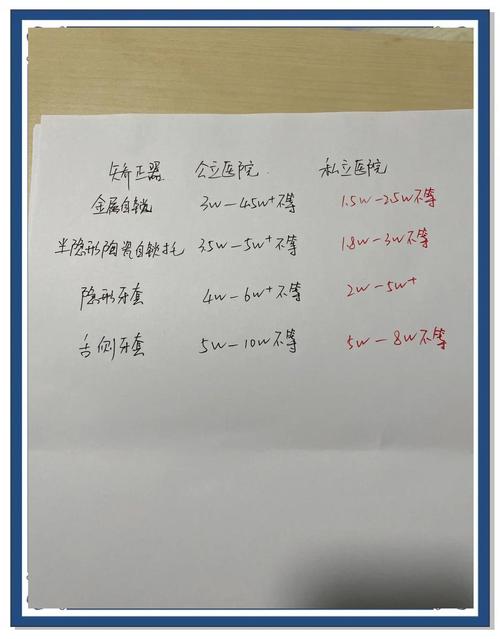 矫正器 公立医院 私立医院
金属自锁 3w-4.5w+不等 1.5w-2.5w不等
半隐形陶瓷自锁托 3.5w-5w+不等 1.8w-3w不等
隐形牙套 4w-6w+不等 2w-5w+
舌侧牙套 5w-10w不等 5w-8w不等